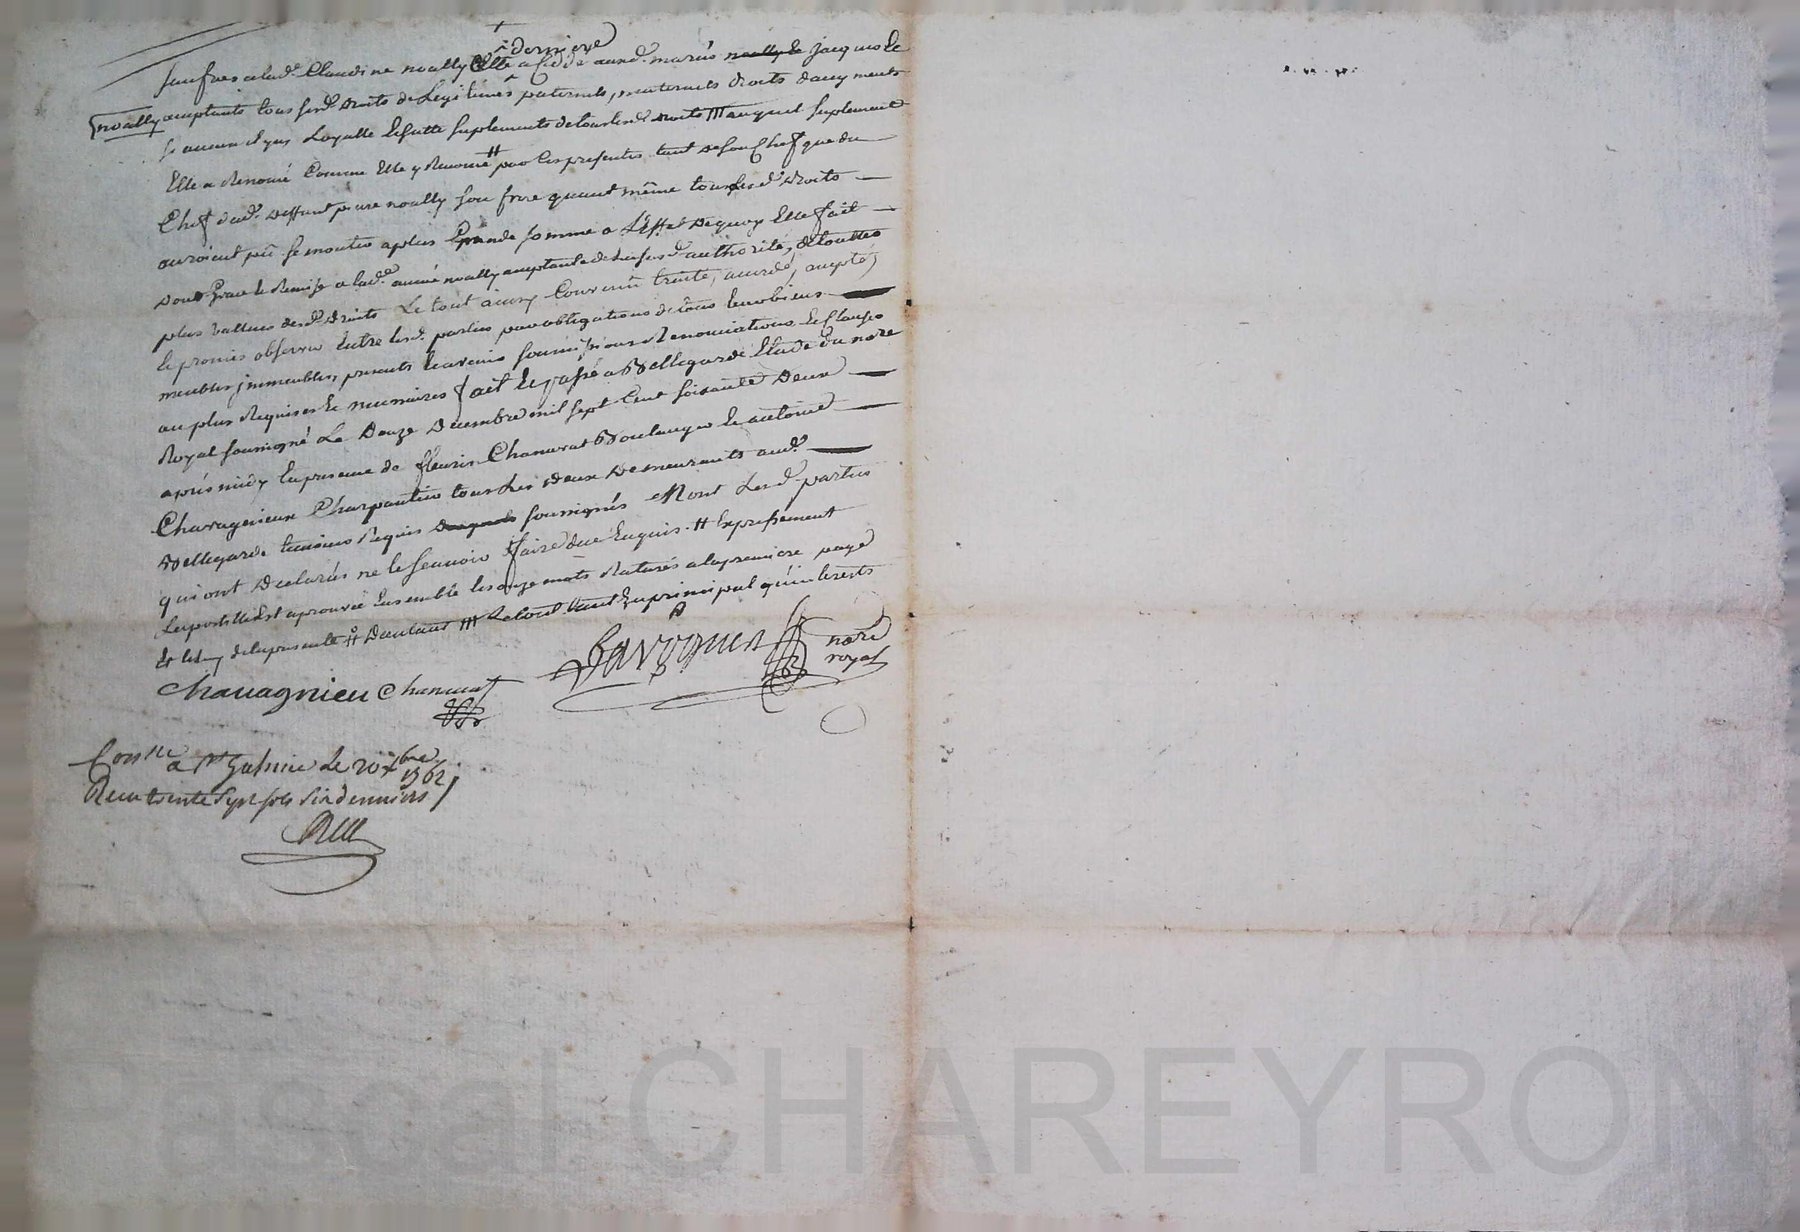 derniere
sa frere a lad.e Claudine noally Elle a Cedde aux d. mariés noally et jacques le
noally acceptants tous sesd. droits de Legitimes paternels, maternels droits daugments
si aucun il y a Loyalle Et faitte suplements de tous lesd. droits /// auquel suplement
Elle a Renoncé Comme Elle y Renonce # par les presentes tant de son Chef que du
Chef dud. deffunt pierre noally son frere quand même tous lesd. droits
auroient pû se monter a plus Grande somme a L'Effet de quoy Elle fait
don Grace et Remise a lad.e aimé noally acceptante de lad. authorité, de touttes
plus vallues desd. droits Le tout ainsy Convenû traité, accordé, accepté,
Et promis observer Entre lesd. parties par obligations de tous leurs biens
meubles, immeubles, presents Et avenir soumissions Renonciations Et Clauses
au plus Requises Et necessaires fait Et passé a Bellegarde Etude du no.re
Royal soussigné Le Douze Decembre mil sept Cent soixante Deux
aprés midy En presence de fleurin Chanurat Boulanger Et antoine
Chavagnieux Charpantier tous Les deux Demeurants aud.
Bellegarde temoins Requis soussignés Et Non Lesd. parties
qui ont Declarés ne le sçavoir faire de ce Enquis . # Expressement
Le postille Est aprouvée Ensemble les onze mots Raturés a la premiere page
Et les de la presente /// Le tout tant En principal qu'interests
Chavagnieu Chanurat
no.re
royal
Con.llé a S.t Galmier Le 20 x.bre 1762
Recu trente sept sols six denniers